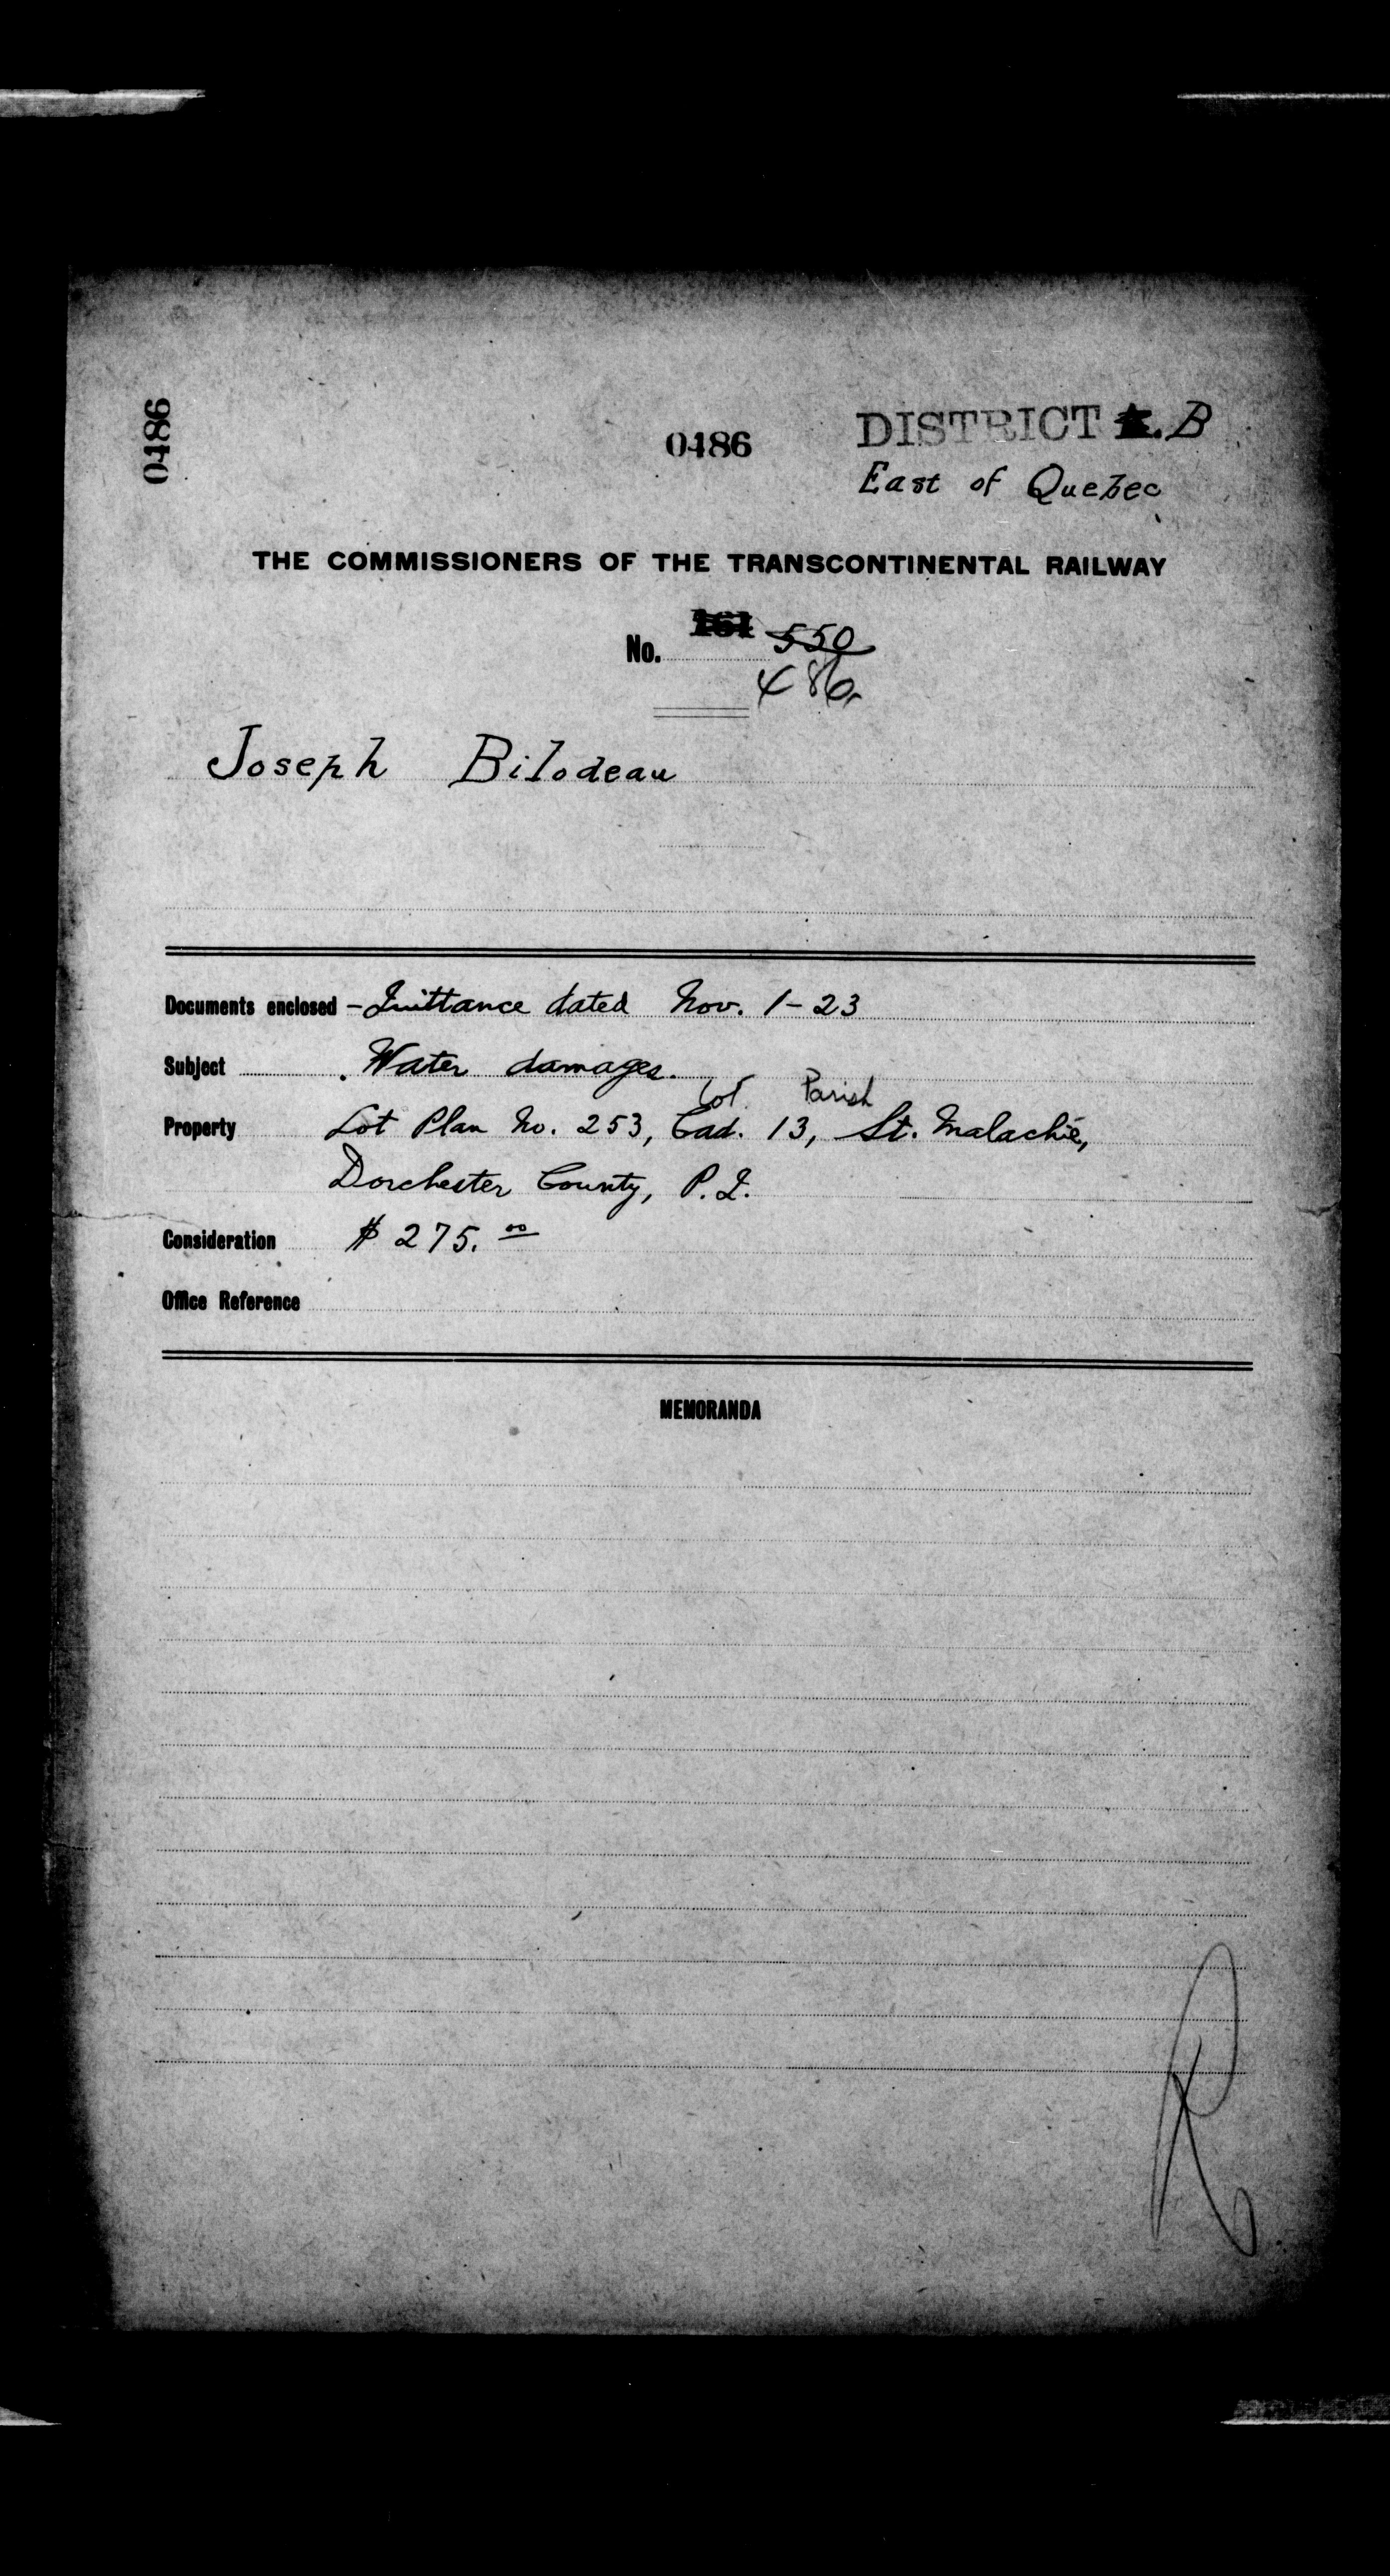 0486
0486
DISTRICT A. B
East of Quebec
THE COMMISSIONERS OF THE TRANSCONTINENTAL RAILWAY
No. 161 550
486
Joseph Bilodeau
Documents enclosed - Quittance dated Nov. 1-23
Subject Water damages.
Lot Parish
Property Lot Plan No. 253, Cad. 13, St. Malachie,
Dorchester County, P.Q.
Consideration $275.00
Office Reference
MEMORANDA
R